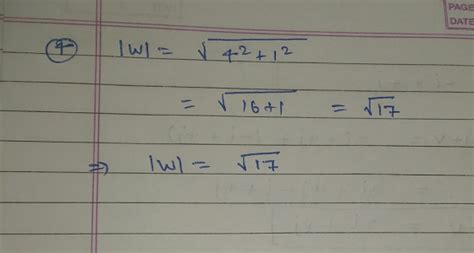 PAGE
DATE
④ |W| = √4²+1²
= √16+1 = √17
⇒ |W| = √17